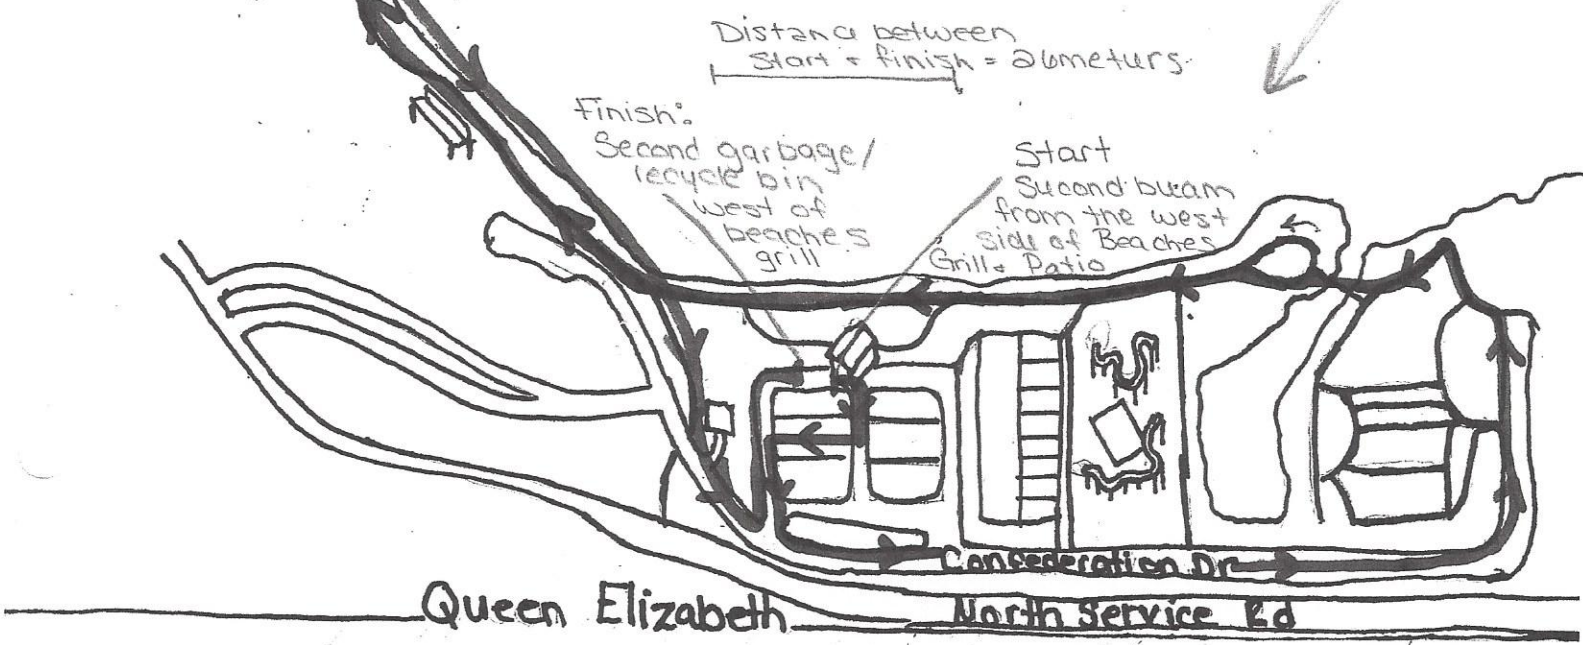 Distance between
Start + finish = 26meters.
Finish:
Second garbage/
recycle bin
west of
beaches
grill
Start
Second beam
from the west
side of Beaches
Grill + Patio
Confederation Dr
Queen Elizabeth
North Service Rd